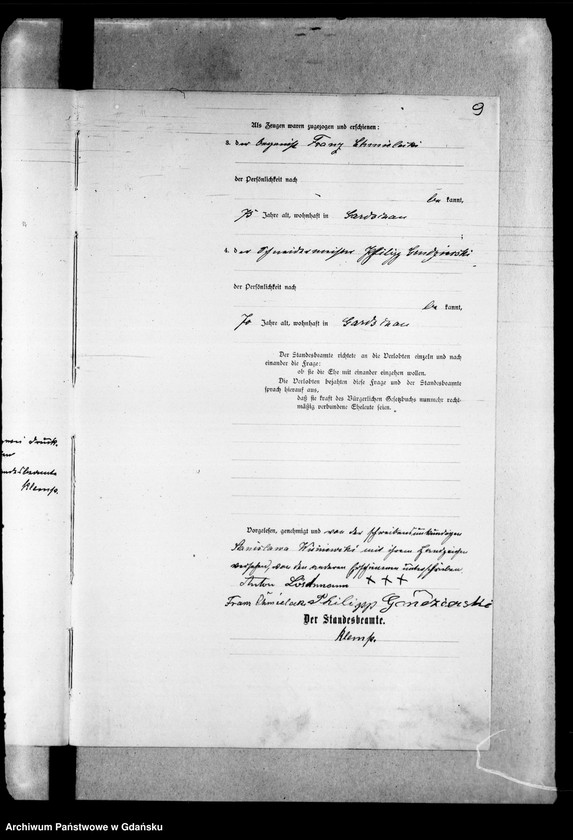 9
Als Zeugen waren zugezogen und erschienen:
3. der Organist Franz Chmielecki
der Persönlichkeit nach
be kannt,
75 Jahre alt, wohnhaft in Gardschau
;
4. der Schneidermeister Philipp
der Persönlichkeit nach
be kannt,
70 Jahre alt, wohnhaft in Gardschau
.
Der Standesbeamte richtete an die Verlobten einzeln und nach
einander die Frage:
ob sie die Ehe mit einander eingehen wollen.
Die Verlobten bejahten diese Frage und der Standesbeamte
sprach hierauf aus,
daß sie kraft des Bürgerlichen Gesetzbuchs nunmehr recht-
mäßig verbundene Eheleute seien.
drei Druck-
Klemp.
Vorgelesen, genehmigt und von der schreibensunkundigen
Stanislawa Wisniewski mit ihrem Handzeichen
versehen, von den anderen Erschienenen unterschrieben
Anton Löschmann + + +
Philipp
Der Standesbeamte.
Klemp.
Archiwum Państwowe w Gdańsku